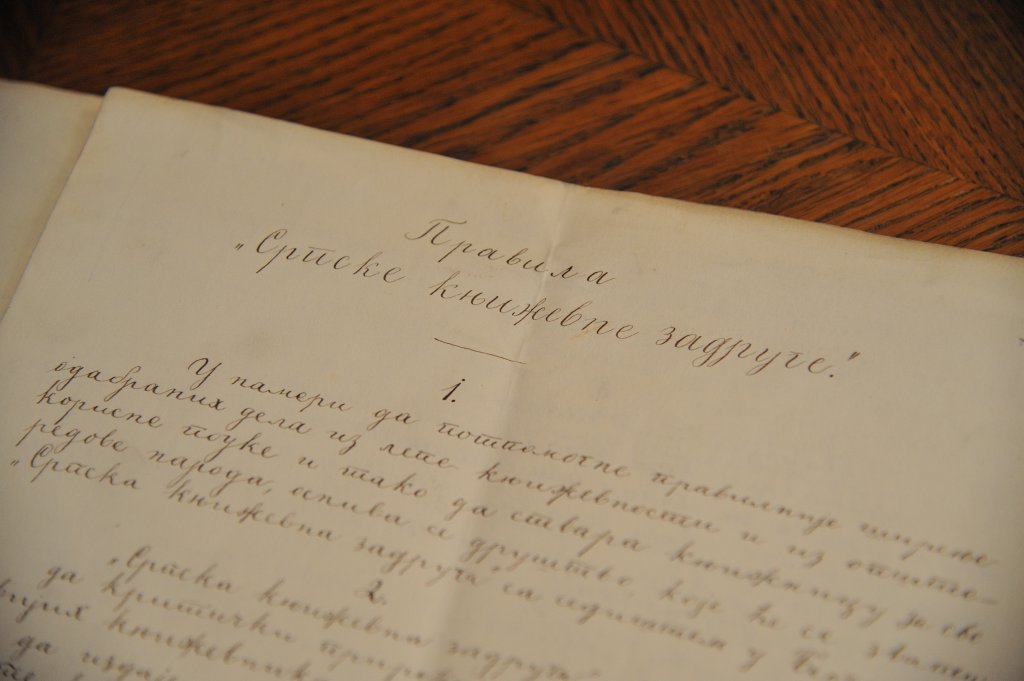 Правила
„Српске књижевне задруге."
1.
У намери да потпомогне правилније ширење
одабраних дела из лепе књижевности и из општо-
корисне поуке и тако да ствара књижницу за све
редове народа, оснива се друштво, које ће се звати
„Српска књижевна задруга" са седиштем у
2.
„Српска књижевна задруга"
да критички
књижевника
да издаје